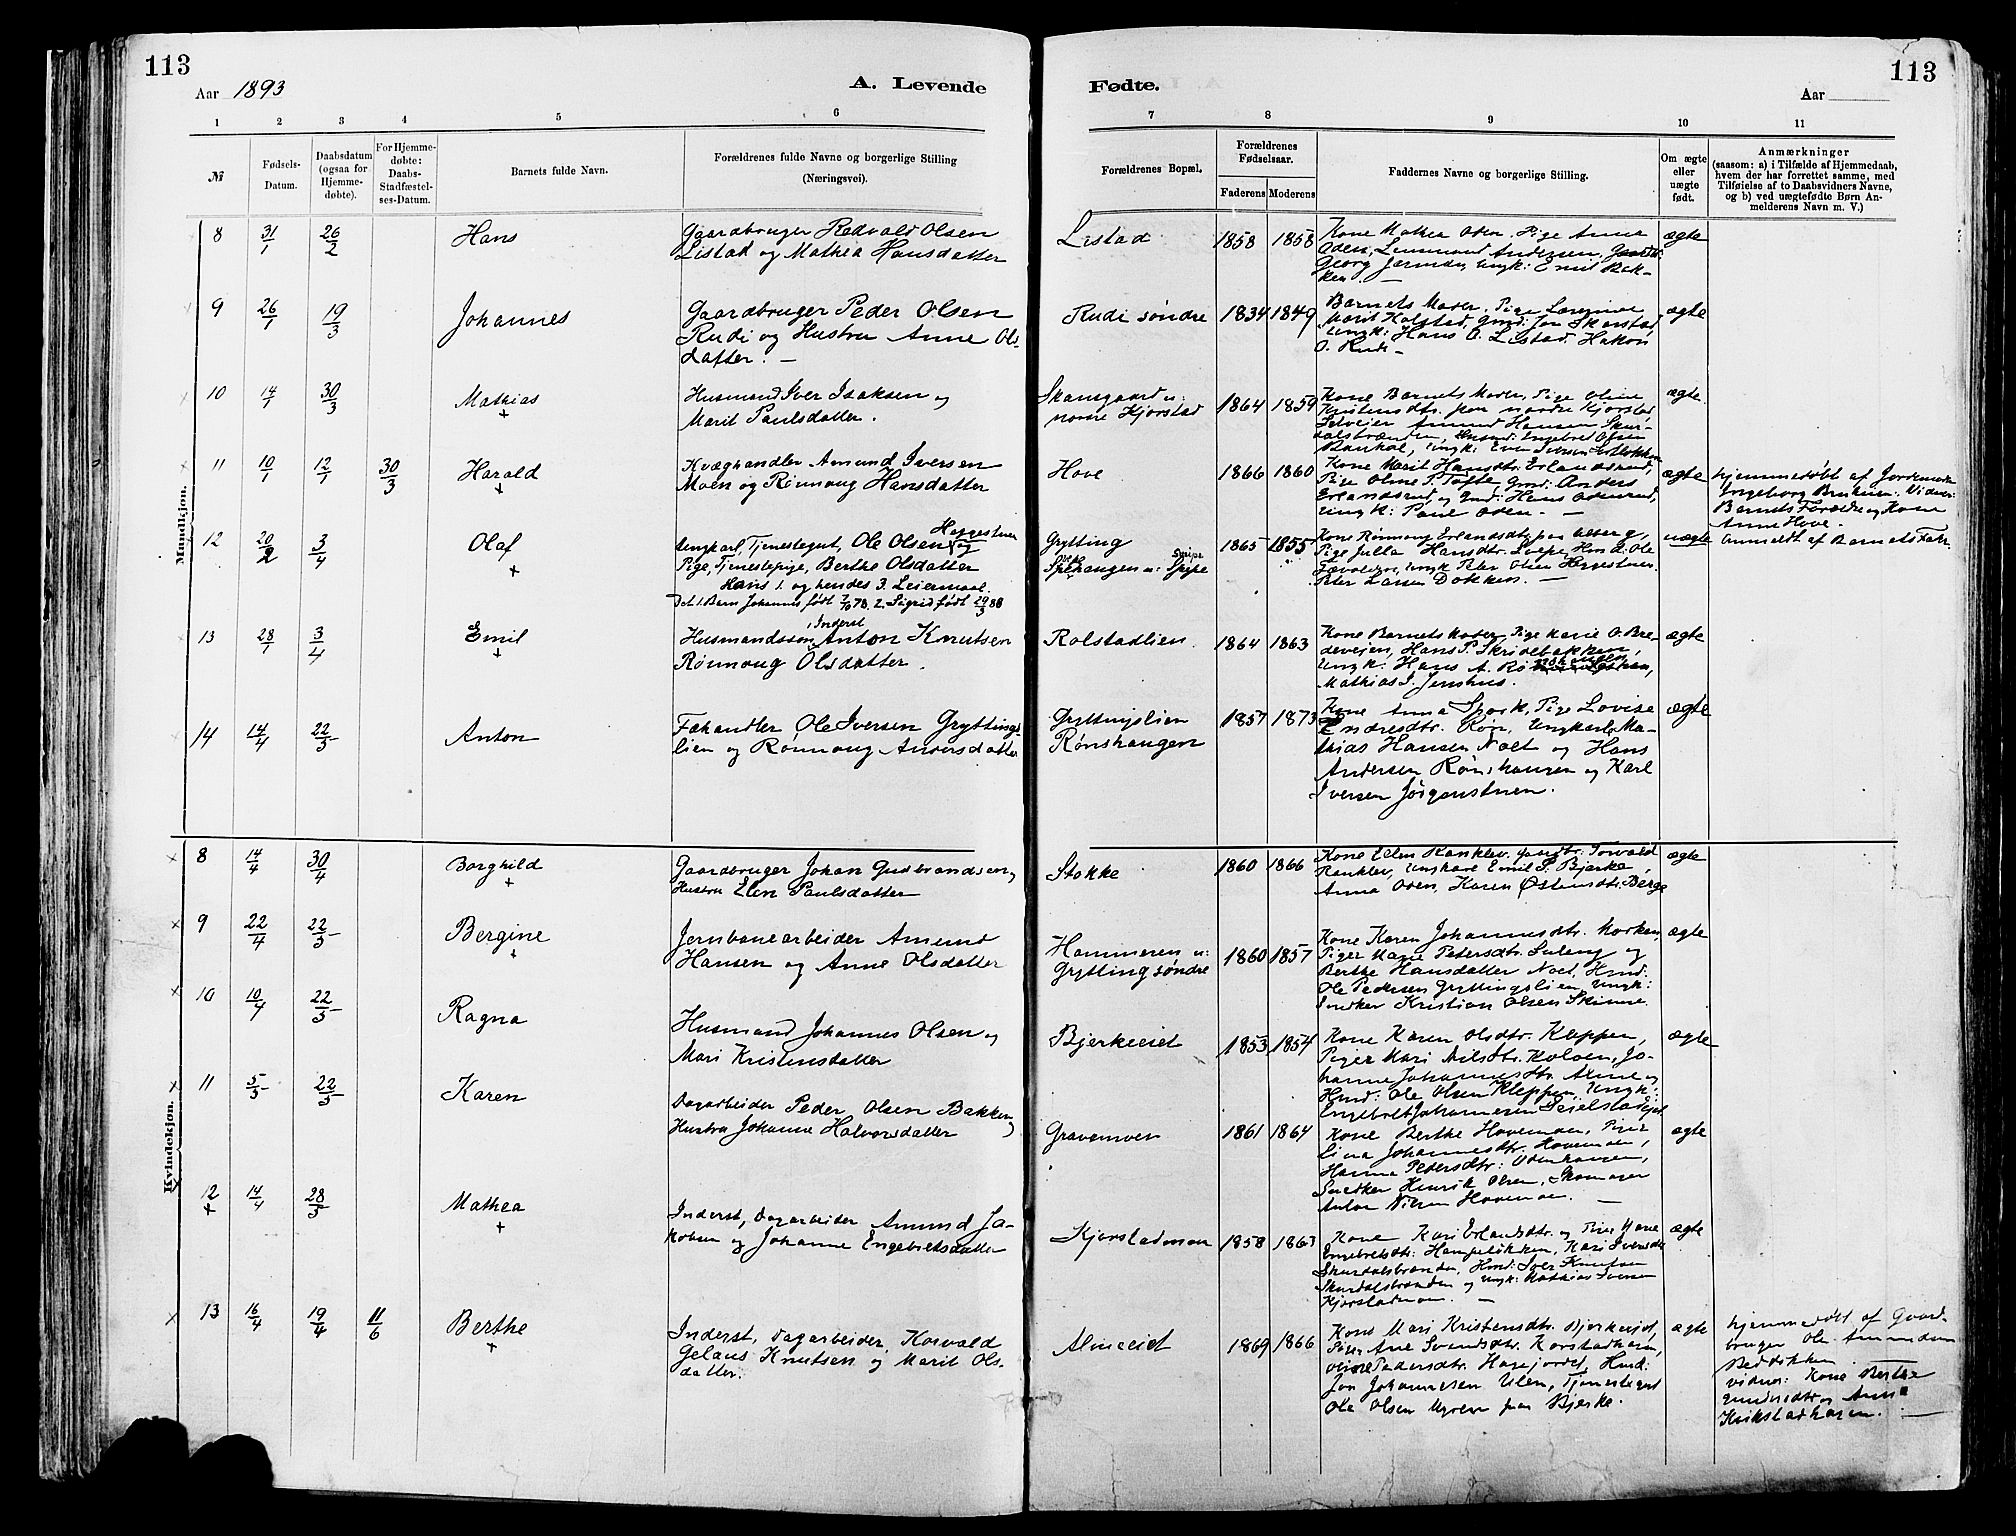 113
Aar 1893
A. Levende
1 2 3 4 5 6
№
Fødsels-
Datum.
Daabsdatum
(ogsaa for
Hjemme-
døbte).
For Hjemme-
døbte:
Daabs-
Stadfæstel-
ses-Datum.
Barnets fulde Navn.
Forældrenes fulde Navne og borgerlige Stilling
(Næringsvei).
Mandkjøn.
8 31/1 26/2 Hans
Gaardbruger Redvald Olsen
Listad og Mathea Hansdatter
9 26/1 19/3 Johannes
Gaardbruger Peder Olsen
Rudi og Hustru Anne Ols-
datter. —
10 14/1 30/3 Mathias +
Husmand Iver Isaksen og
Marit Paulsdatter.
11 10/1 12/1 30/3 Harald +
Kvæghandler Amund Iversen
Moen og Rønnoug Hansdatter
12 20/2 3/4 Olaf +
Ungkarl, Tjenestegut, Ole Olsen Heggestuen og
Pige, Tjenestepige, Berthe Olsdatter
Hans 1. og hendes 3. Leiermaal.
Det 1. Barn Johannes født 78. 2. Sigrid født 29/3 88
13 28/1 3/4 Emil +
Husmandssøn, Inderst Anton Knutsen
Rønnoug Olsdatter.
14 14/4 22/5 Anton
Fæhandler Ole Iversen Gryttings-
lien og Rønnoug Andersdatter
Kvindekjøn.
8 14/4 30/4 Borghild +
Gaardbruger Johan Gudbrandsen og
Hustru Elen Paulsdatter
9 22/4 22/5 Bergine +
Jernbanearbeider Amund
Hansen og Anne Olsdatter
10 10/4 22/5 Ragna
Husmand Johannes Olsen og
Mari Kristensdatter
11 5/5 22/5 Karen
Dagarbeider Peder Olsen Bakken og
Hustru Johanne Halvorsdatter
12 + 14/4 28/5 Mathea +
Inderst, Dagarbeider Amund Ja-
kobsen og Johanne Engebretsdatter
13 16/4 19/4 11/6 Berthe +
Inderst, Dagarbeider, Korvald
Gelaus Knutsen og Marit Ols-
datter.
113
Fødte.
Aar
7 8 9 10 11
Forældrenes Bopæl.
Forældrenes
Fødselsaar.
Faderens Moderens
Faddernes Navne og borgerlige Stilling.
Om ægte
eller
uægte
født.
Anmærkninger
(saasom: a) i Tilfælde af Hjemmedaab,
hvem der har forrettet samme, med
Tilføielse af to Daabsvidners Navne,
og b) ved uægtefødte Børn An-
melderens Navn m. V.)
Listad 1858 1858 ægte
Kone Mathea Oden, Pige Anna
Oden, Andersen,
Georg Ungk: Emil Bak-
ken. —
Rudi søndre 1834 1849 ægte
Barnets Moder, Pige
Marit Kolstad, Gmd: Jon Skarstad,
Ungk: Hans O. Listad, Hakon
O. Rudi —
Skansgaard u:
nordre Kjorstad 1864 1859 ægte
Kone Barnets Moder, Pige Oline
Kristensdtr. paa nordre Kjorstad,
Selveier Amund Hansen Skur-
dalsbrænden, Husmd: Engebret Olsen
Ungk: Even Iversen
Hove 1866 1860 ægte
Kone Marit Hansdtr. Erlandsrud,
Pige Oline P. Tofte, Gmd: Anders
Erlandsrud, og Gmd: Hans
Ungk: Paul Oden. —
Hjemmedøbt af Jordemoder
Ingeborg Vidner:
Barnets Forældre og Kone
Anne Hove.
Grytting
Spihaugen u: Spipe 1865 1855 uægte
Kone Rønnoug Erlandsdtr. paa
Pige Julla Hansdtr. Ole
Ungk Peter Olsen Heggestuen.
Peter Larsen Dokken. —
Anmeldt af Barnets Fader
Rolstadlien 1864 1863 ægte
Kone Barnets Moder, Pige Marie O. Bre-
deveien, Hans P. Skridebakken,
Ungk: Hans A.
Mathias J. Jenshus.
Gryttingslien
Rønshaugen 1857 1873 ægte
Kone Anna Spork, Pige Lovise
Endresdtr. Røn, Ungkarle Ma-
thias Hansen Noet og Hans
Andersen Rønshaugen og Karl
Iversen Jørgenstuen.
Stokke 1860 1866 ægte
Kone Elen Ranklev, Gaardbr: Torvald
Ranklev, Ungkarl Emil P. Bjerke,
Anna Oden, Karen Østensdtr. Berge
Hammeren u:
Grytting søndre 1860 1857 ægte
Kone Karen Johannesdtr.
Piger Marie Petersdtr. Suleng og
Berthe Hansdatter Noet, Hmd:
Ole Pedersen Gryttingslien, Ungk:
Snedker Kristian Olsen Skinne.
Bjerkeeiet 1853 1854 ægte
Kone Karen Olsdtr. Kleppen,
Piger Mari Nilsdtr. Koloen, Jo-
hanne Johannesdtr. og
Hmd: Ole Olsen Kleppen, Ungk:
Engebret Johannesen
Gravemoen 1861 1864 ægte
Kone Berthe Hovemoen, Piger
Lina Johannesdtr. Hovemoen,
Hanna Petersdtr: Odenhaugen,
Snedker Henrik Olsen, Skomager
Anton Nilsen Hovemoen. —
Kjorstadmoen 1858 1863 ægte
Kone Kari Erlandsdtr. og Pige
Engebretsdtr: Kari Iversdtr
Skurdalsbrænden, Hmd: Iver Knutsen
Skurdalsbrænden og Ungk: Mathias Iversen
Kjorstadmoen. —
Almeeiet 1869 1866 ægte
Kone Mari Kristensdtr. Bjerkeeiet,
Pige Ane Svendsdtr. Korstadhaugen,
Pedersdtr. Hagejordet, Hmd:
Jon Johannesen Ulen, Tjenestegut
Ole Olsen Myren paa Bjerke.
Hjemmedøbt af Gaard-
bruger Ole Amundsen
vidner: Kone Berthe
og Anne
Krikstadhagen. —